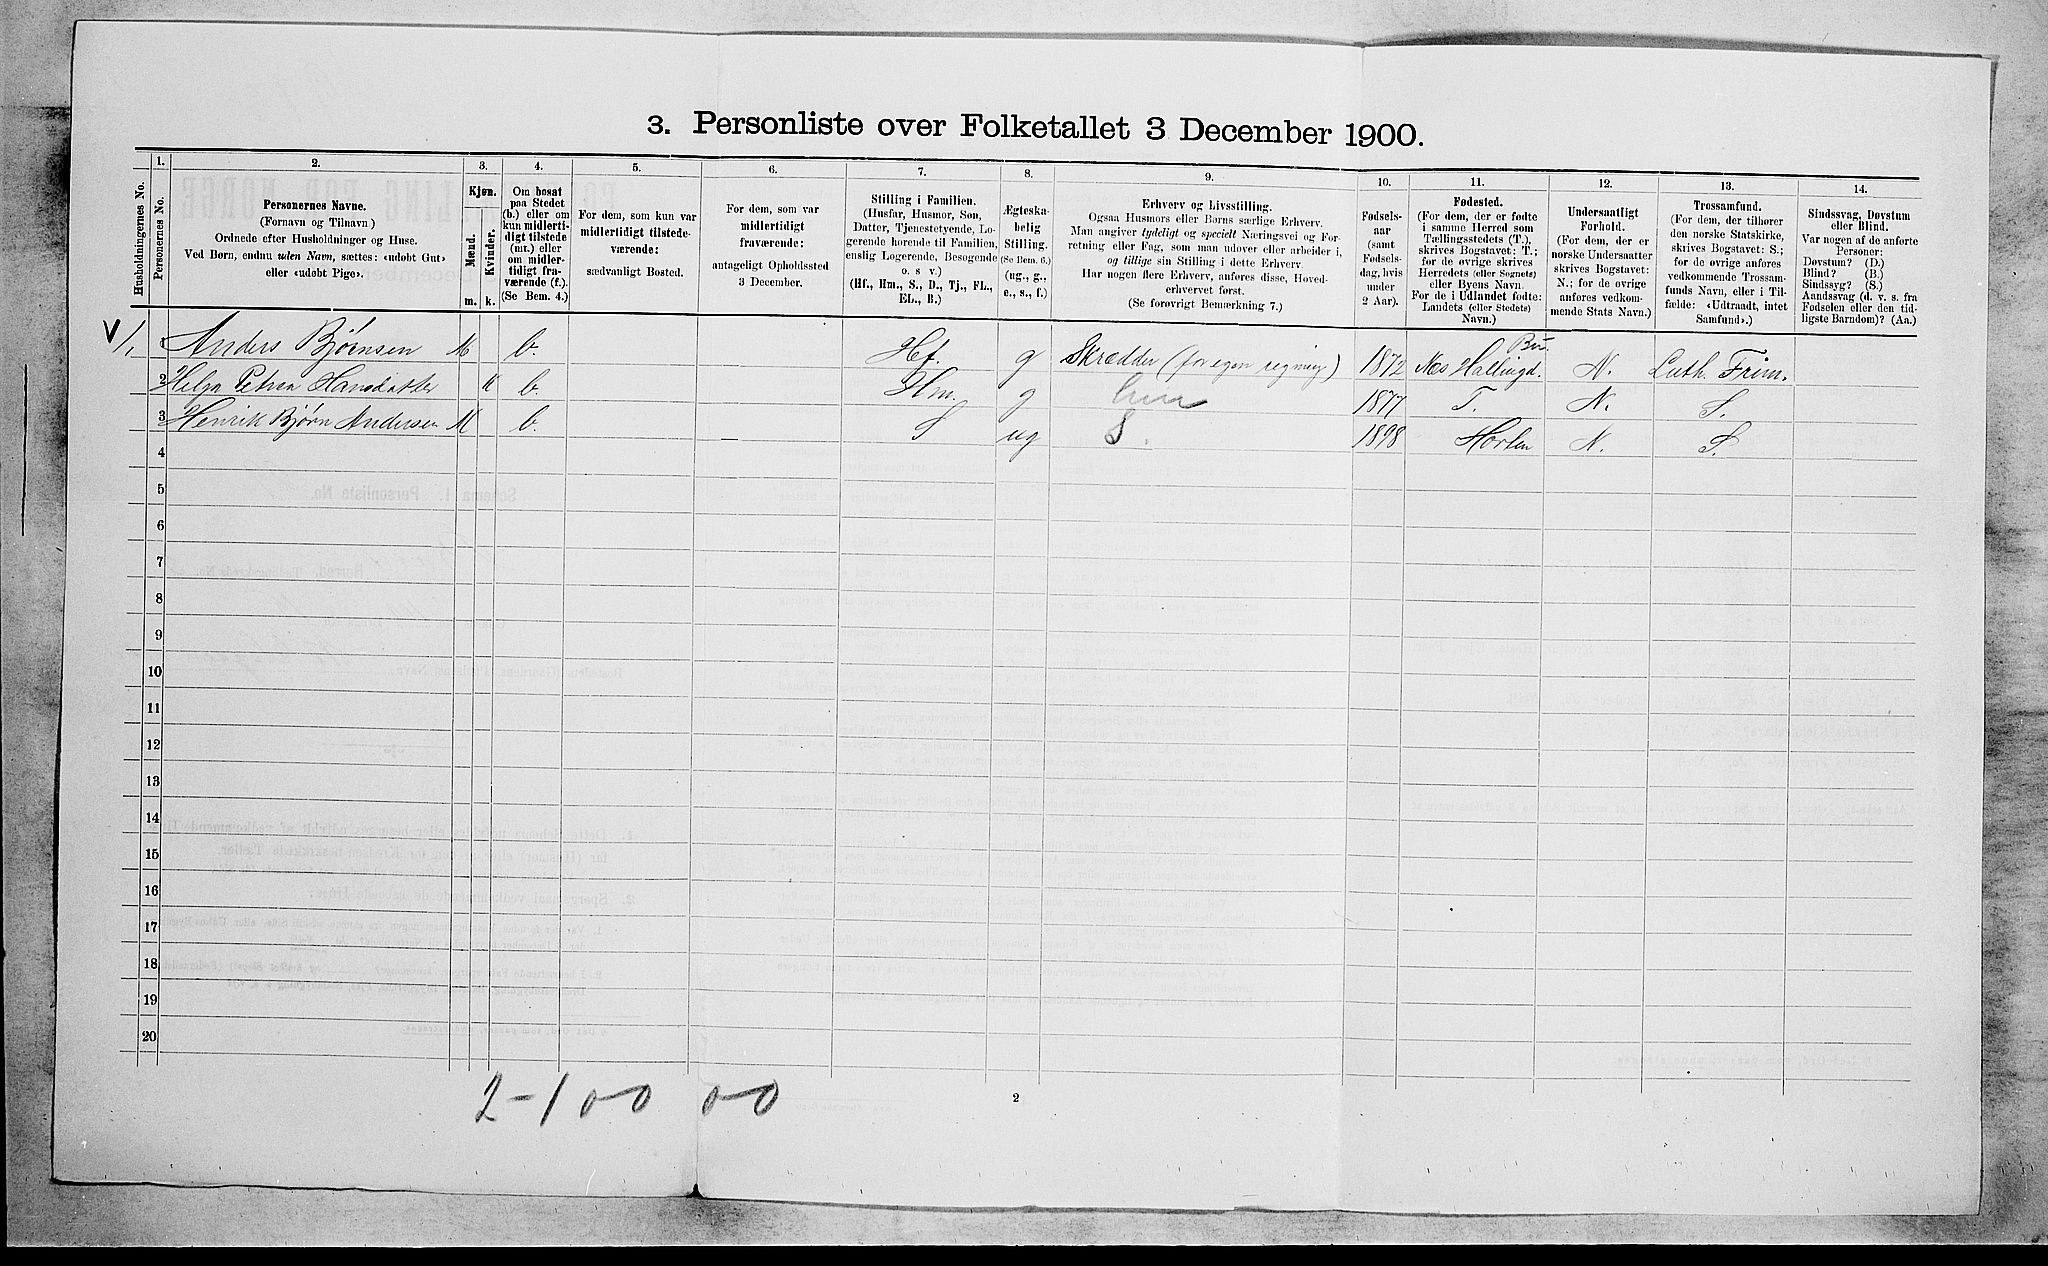 3. Personliste over Folketallet 3 December 1900.
Husholdningernes No.
1.
Personernes No.
2.
Personernes Navne.
(Fornavn og Tilnavn)
Ordnede efter Husholdninger og Huse.
Ved Børn, endnu uden Navn, sættes: «udøbt Gut»
eller «udøbt Pige».
3.
Kjøn.
Mænd.
Kvinder.
m. k.
4.
Om bosat
paa Stedet
(b.) eller om
kun midlerti-
digt tilstede
(mt.) eller
om midler-
tidigt fra-
værende (f.).
(Se Bem. 4.)
5.
For dem, som kun var
midlertidigt tilstede-
værende:
sædvanligt Bosted.
6.
For dem, som var
midlertidigt
fraværende:
antageligt Opholdssted
3 December.
7.
Stilling i Familien.
(Husfar, Husmor, Søn,
Datter, Tjenestetyende, Lo-
gerende hørende til Familien,
enslig Logerende, Besøgende
o. s v.)
(Hf., Hm., S., D., Tj., FL.,
EL., B.)
8.
Ægteska-
belig
Stilling.
(Se Bem. 6.)
(ug., g.,
e., s., f.)
9.
Erhverv og Livsstilling.
Ogsaa Husmors eller Børns særlige Erhverv.
Man angiver tydeligt og specielt Næringsvei og For-
retning eller Fag, som man udover eller arbeider i,
og tillige sin Stilling i dette Erhverv.
Har nogen flere Erhverv, anføres disse, Hoved-
erhvervet først.
(Se forøvrigt Bemærkning 7.)
10.
Fødsels-
aar
(samt
Fødsels-
dag, hvis
under
2 Aar).
11.
Fødested.
(For dem, der er fødte
i samme Herred som
Tællingsstedets (T.),
skrives Bogstavet: T.;
for de øvrige skrives
Herredets (eller Sognets)
eller Byens Navn.
For de i Udlandet fødte:
Landets (eller Stedets)
Navn.)
12.
Undersaatligt
Forhold.
(For dem, der er
norske Undersaatter
skrives Bogstavet:
N.; for de øvrige
anføres vedkom-
mende Stats Navn.)
13.
Trossamfund.
(For dem, der tilhører
den norske Statskirke,
skrives Bogstavet: S.;
for de øvrige anføres
vedkommende Trossam-
funds Navn, eller i Til-
fælde: «Udtraadt, intet
Samfund».)
14.
Sindssvag, Døvstum
eller Blind.
Var nogen af de anførte
Personer:
Døvstum? (D.)
Blind? (B.)
Sindssyg? (S.)
Aandssvag (d. v. s. fra
Fødselen eller den tid-
ligste Barndom)? (Aa.)
V/1 1 Anders Bjørnsen M b. Hf. g Skrædder (for egen regning) 1872 Næs Hallingd. Bu. N. Luth. Frim.
2 Helga Petrea Hansdatter K b. Hm. g 1877 T. N. S.
3 Henrik Bjørn Andersen M b. S ug S. 1898 Horten N. S.
4
5
6
7
8
9
10
11
12
13
14
15
16
17
18
19
20
2-1 00 00
2